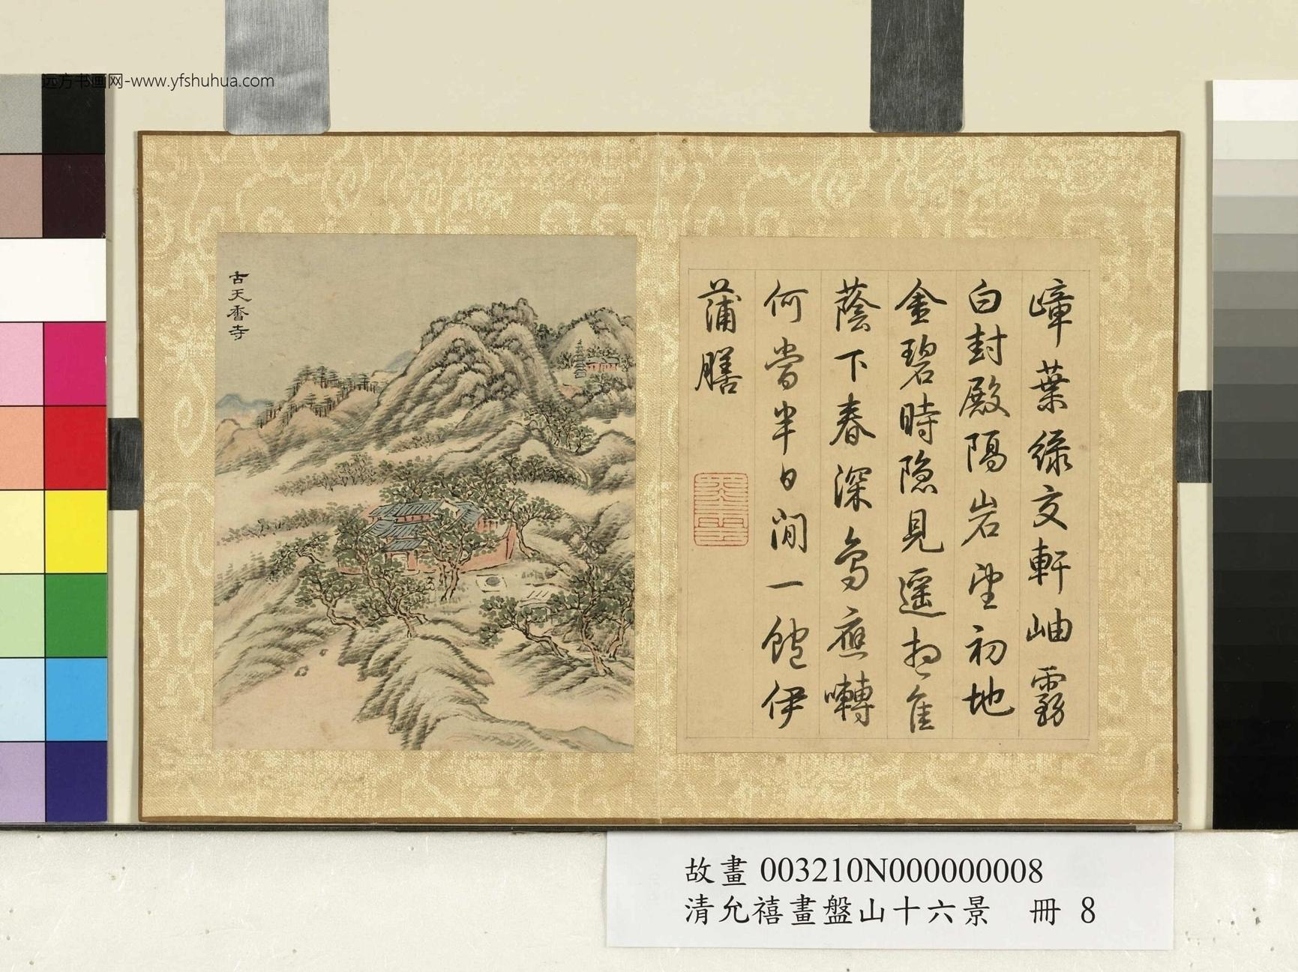 远方书画网-www.yfshuhua.com
古天香寺
嶂葉緑交軒岫霧
白封殿隔岩望初地
金碧時隠見遥想隹
蔭下春深鳥應囀
何當半日閒一飽伊
蒲膳
故畫 003210N000000008
清允禧畫盤山十六景 冊 8